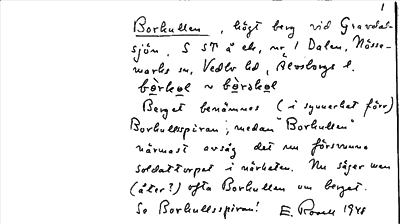 1
Borkullen, högt berg vid Gravdal-
sjön, S ST å ek, nr 1 Dalen, Nösse-
marks sn, Vedbo hd, Älvsborgs l.
bo̲rkol ~ bo̲rskol
Berget benämnes (i synnerhet förr)
Borkullsspiran, medan "Borkullen"
närmast avsåg det nu försvunna
soldattorpet i närheten. Nu säger man
(åter?) ofta Borkullen om berget.
Se Borkullsspiran! E. Rosell 1948